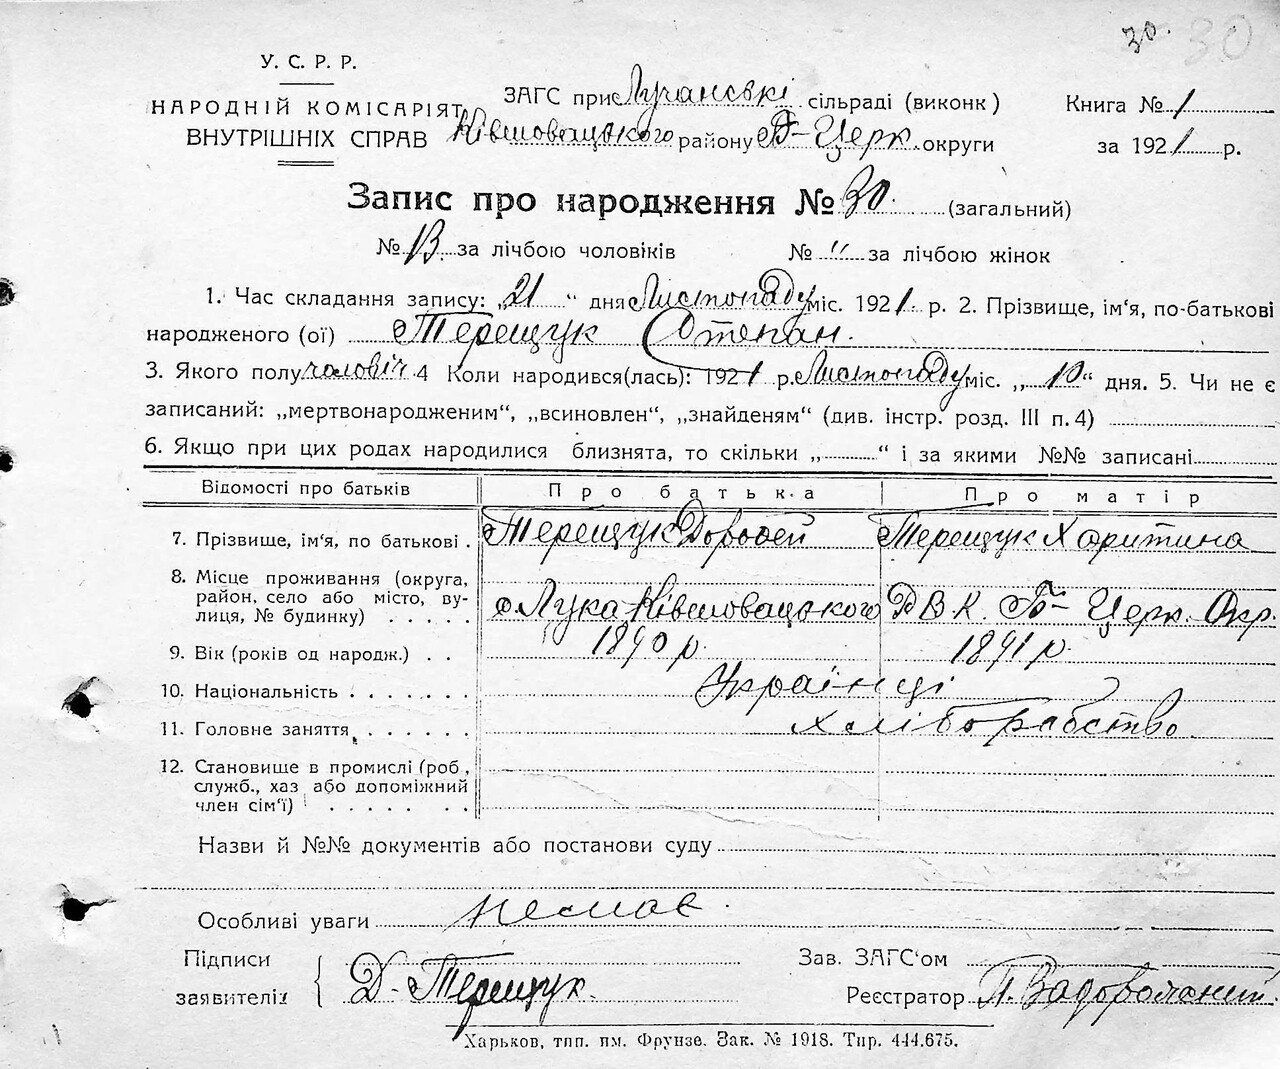 30. 30
У. С. Р. Р.
НАРОДНІЙ КОМІСАРІЯТ
ВНУТРІШНІХ СПРАВ
ЗАГС при Лучанські сільраді (виконк)
Ківшовацького району Б-Церк. округи
Книга № 1
за 1921 р.
Запис про народження № 30. (загальний)
№ 13. за лічбою чоловіків № " за лічбою жінок
1. Час складання запису: „21" дня Листопаду міс. 1921 р. 2. Прізвище, ім'я, по-батькові
народженого (ої) Терещук Степан.
3. Якого полу чоловіч. 4 Коли народився(лась): 1921 р. Листопаду міс. „10" дня. 5. Чи не є
записаний: „мертвонародженим", „всиновлен", „знайденям" (див. інстр. розд. III п. 4)
6. Якщо при цих родах народилися близнята, то скільки „ " і за якими №№ записані
Відомості про батьків Про батька Про матір
7. Прізвище, ім'я, по батькові . Терещук Дорофей Терещук Харитина
8. Місце проживання (округа,
район, село або місто, ву-
лиця, № будинку) . . . . . с. Лука Ківшовацького Р В К. Б- Церк. Окр.
9. Вік (років од народж.) . . 1890 р. 1891 р.
10. Національність . . . . . . . Українці
11. Головне заняття . . . . . . хліборобство.
12. Становище в промислі (роб.,
служб., хаз або допоміжний
член сім'ї) . . . . . . .
Назви й №№ документів або постанови суду
Особливі уваги немає.
Підписи
заявителів Д. Терещук.
Зав. ЗАГС'ом
Реєстратор П.
Харьков, тип. им. Фрунзе. Зак. № 1918. Тир. 444.675.